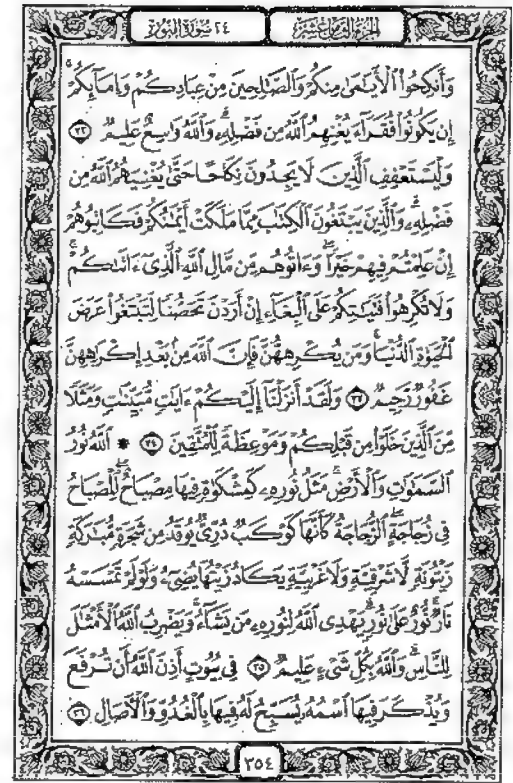 الجزء الثامن عشر ٢٤ سورة النور
وَأَنكِحُوا۟ ٱلْأَيَـٰمَىٰ مِنكُمْ وَٱلصَّـٰلِحِينَ مِنْ عِبَادِكُمْ وَإِمَآئِكُمْ ۚ
إِن يَكُونُوا۟ فُقَرَآءَ يُغْنِهِمُ ٱللَّهُ مِن فَضْلِهِۦ ۗ وَٱللَّهُ وَٰسِعٌ عَلِيمٌ ٣٢
وَلْيَسْتَعْفِفِ ٱلَّذِينَ لَا يَجِدُونَ نِكَاحًا حَتَّىٰ يُغْنِيَهُمُ ٱللَّهُ مِن
فَضْلِهِۦ ۗ وَٱلَّذِينَ يَبْتَغُونَ ٱلْكِتَـٰبَ مِمَّا مَلَكَتْ أَيْمَـٰنُكُمْ فَكَاتِبُوهُمْ
إِنْ عَلِمْتُمْ فِيهِمْ خَيْرًا ۖ وَءَاتُوهُم مِّن مَّالِ ٱللَّهِ ٱلَّذِىٓ ءَاتَىٰكُمْ ۚ
وَلَا تُكْرِهُوا۟ فَتَيَـٰتِكُمْ عَلَى ٱلْبِغَآءِ إِنْ أَرَدْنَ تَحَصُّنًا لِّتَبْتَغُوا۟ عَرَضَ
ٱلْحَيَوٰةِ ٱلدُّنْيَا ۚ وَمَن يُكْرِههُّنَّ فَإِنَّ ٱللَّهَ مِنۢ بَعْدِ إِكْرَٰهِهِنَّ
غَفُورٌ رَّحِيمٌ ٣٣ وَلَقَدْ أَنزَلْنَآ إِلَيْكُمْ ءَايَـٰتٍ مُّبَيِّنَـٰتٍ وَمَثَلًا
مِّنَ ٱلَّذِينَ خَلَوْا۟ مِن قَبْلِكُمْ وَمَوْعِظَةً لِّلْمُتَّقِينَ ٣٤ * ٱللَّهُ نُورُ
ٱلسَّمَـٰوَٰتِ وَٱلْأَرْضِ ۚ مَثَلُ نُورِهِۦ كَمِشْكَوٰةٍ فِيهَا مِصْبَاحٌ ۖ ٱلْمِصْبَاحُ
فِى زُجَاجَةٍ ۖ ٱلزُّجَاجَةُ كَأَنَّهَا كَوْكَبٌ دُرِّىٌّ يُوقَدُ مِن شَجَرَةٍ مُّبَـٰرَكَةٍ
زَيْتُونَةٍ لَّا شَرْقِيَّةٍ وَلَا غَرْبِيَّةٍ يَكَادُ زَيْتُهَا يُضِىٓءُ وَلَوْ لَمْ تَمْسَسْهُ
نَارٌ ۚ نُّورٌ عَلَىٰ نُورٍ ۗ يَهْدِى ٱللَّهُ لِنُورِهِۦ مَن يَشَآءُ ۚ وَيَضْرِبُ ٱللَّهُ ٱلْأَمْثَـٰلَ
لِلنَّاسِ ۗ وَٱللَّهُ بِكُلِّ شَىْءٍ عَلِيمٌ ٣٥ فِى بُيُوتٍ أَذِنَ ٱللَّهُ أَن تُرْفَعَ
وَيُذْكَرَ فِيهَا ٱسْمُهُۥ يُسَبِّحُ لَهُۥ فِيهَا بِٱلْغُدُوِّ وَٱلْـَٔاصَالِ ٣٦
٣٥٤